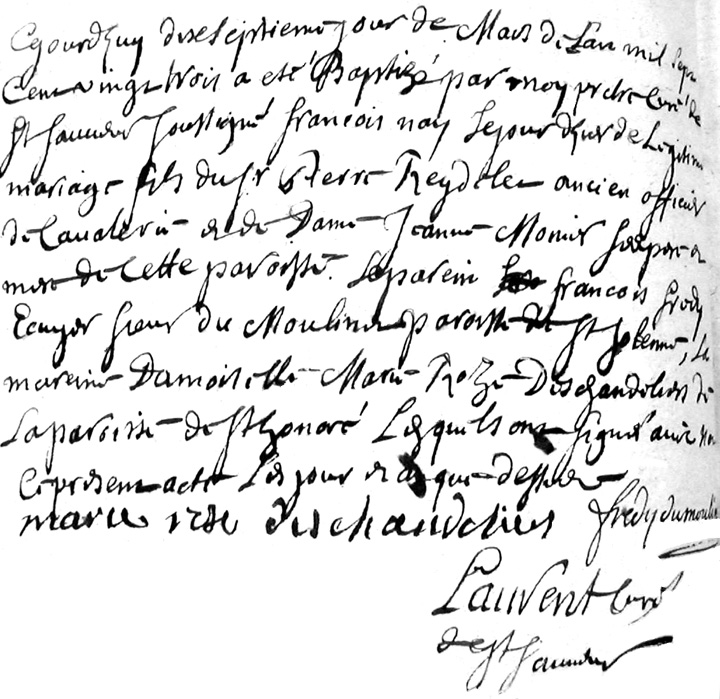 Cejourdhuy dixseiptieme jour de Mars de Lan mil sept
Cent vingt trois a eté Baptizé par moy prétre Curé de
St Sauveur soussigné francois nay Cejourdhuy de Legitime
mariage fils du Sr Pierre Reydelet ancien officier
de Cavalerie et de Dame Jeanne Monier ses pere et
mere de Cette paroisse. Le parein francois fredy
Ecuyer sieur du Moulinet paroisse de St Etienne, La
mareine Damoiselle Marie Roze Deschandeliers de
La paroisse de St honoré Lesquels ont signé avec moy
Ce present acte Les jour et an que dessus
marie roze deschandeliers fredy dumoulin
Laurent Curé
de St Sauveur